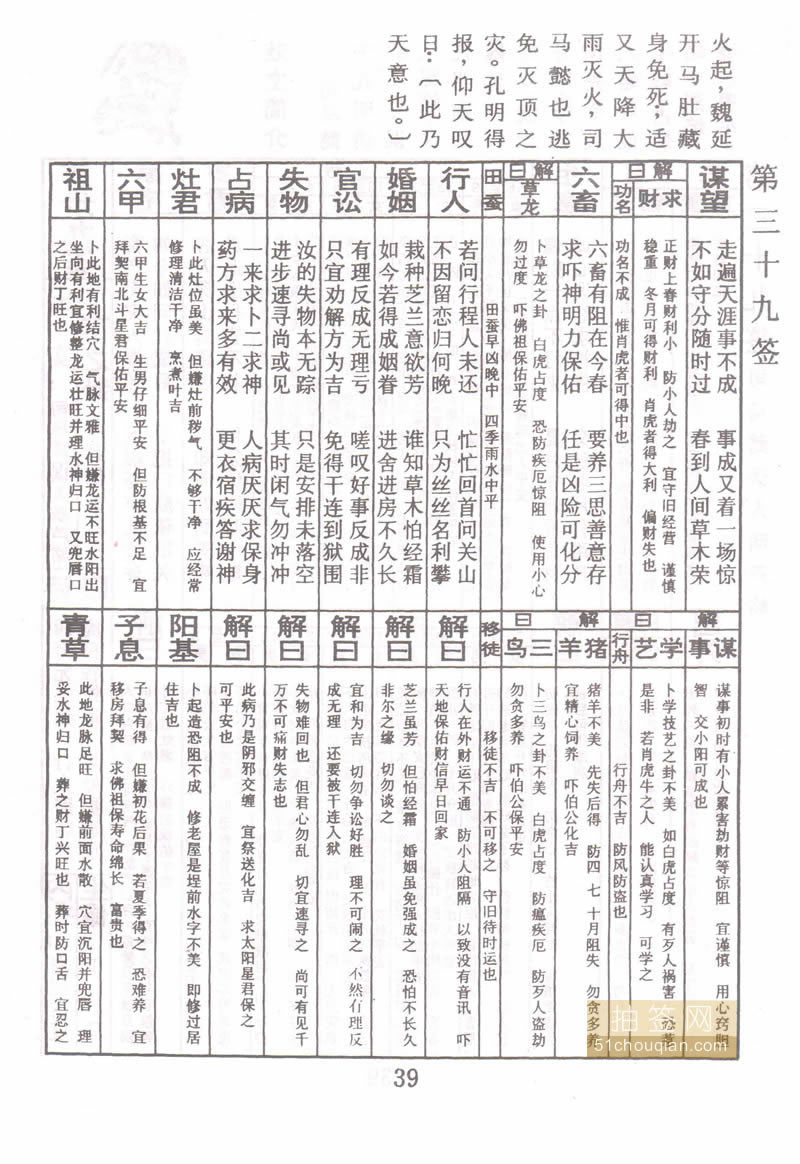 火起，魏延
开马肚藏
身免死；适
又天降大
雨灭火，司
马懿也逃
免灭顶之
灾。孔明得
报，仰天叹
曰：〔此乃
天意也。〕
第三十九签
谋望
走遍天涯事不成　事成又着一场惊
不如守分随时过　春到人间草木荣
解曰
求财
正财上春财利小　防小人劫之　宜守旧经营　谨慎
稳重　冬月可得财利　肖虎者得大利　偏财失也
功名
功名不成　惟肖虎者可得中也
六畜
六畜有阻在今春　要养三思善意存
求吓神明力保佑　任是凶险可化分
解曰
草龙
卜草龙之卦　白虎占度　恐防疾厄惊阻　使用小心
勿过度　吓佛祖保佑平安
田蚕
田蚕早凶晚中　四季雨水中平
行人
若问行程人未还　忙忙回首问关山
不因留恋归何晚　只为丝丝名利攀
婚姻
栽种芝兰意欲芳　谁知草木怕经霜
如今若得成姻眷　进舍进房不久长
官讼
有理反成无理亏　嗟叹好事反成非
只宜劝解方为吉　免得干连到狱围
失物
汝的失物本无踪　只是安排未落空
进步速寻尚或见　其时闲气勿冲冲
占病
一来求卜二求神　人病厌厌求保身
药方求来多有效　更衣宿疾答谢神
灶君
卜此灶位虽美　但嫌灶前秽气　不够干净　应经常
修理清洁干净　烹煮叶吉
六甲
六甲生女大吉　生男仔细平安　但防根基不足　宜
拜契南北斗星君保佑平安
祖山
卜此地有利结穴　气脉文雅　但嫌龙运不旺水阳出
坐向有利宜修整龙运壮旺并理水神归口　又兜唇口
之后财丁旺也
解
谋事
谋事初时有小人累害劫财等惊阻　宜谨慎　用心窍胆
智　交小阳可成也
解曰
学艺
卜学技艺之卦不美　如白虎占度　有歹人祸害
是非　若肖虎牛之人　能认真学习　可学之
行舟
行舟不吉　防风防盗也
猪羊
猪羊不美　先失后得　防四　七　十月阻失　勿贪多养
宜精心饲养　吓伯公化吉
解曰
三鸟
卜三鸟之卦不美　白虎占度　防瘟疾厄　防歹人盗劫
勿贪多养　吓伯公保平安
移徒
移徒不吉　不可移之　守旧待时运也
解曰
行人在外财运不通　防小人阻隔　以致没有音讯　吓
天地保佑财信早日回家
解曰
芝兰虽芳　但怕经霜　婚姻虽免强成之　恐怕不长久
非尔之缘　切勿谈之
解曰
宜和为吉　切勿争讼好胜　理不可闹之　不然有理反
成无理　还要被干连入狱
解曰
失物难回也　但君心勿乱　切宜速寻之　尚可有见千
万不可痛财失志也
解曰
此病乃是阴邪交缠　宜祭送化吉　求太阳星君保之
可平安也
阳基
卜起造恐阻不成　修老屋是埕前水字不美　即修过居
住吉也
子息
子息有得　但嫌初花后果　若夏季得之　恐难养　宜
移房拜契　求佛祖保寿命绵长　富贵也
青草
此地龙脉足旺　但嫌前面水散　穴宜沉阳并兜唇　理
妥水神归口　葬之财丁兴旺也　葬时防口舌　宜忍之
抽签网
51chouqian.com
39